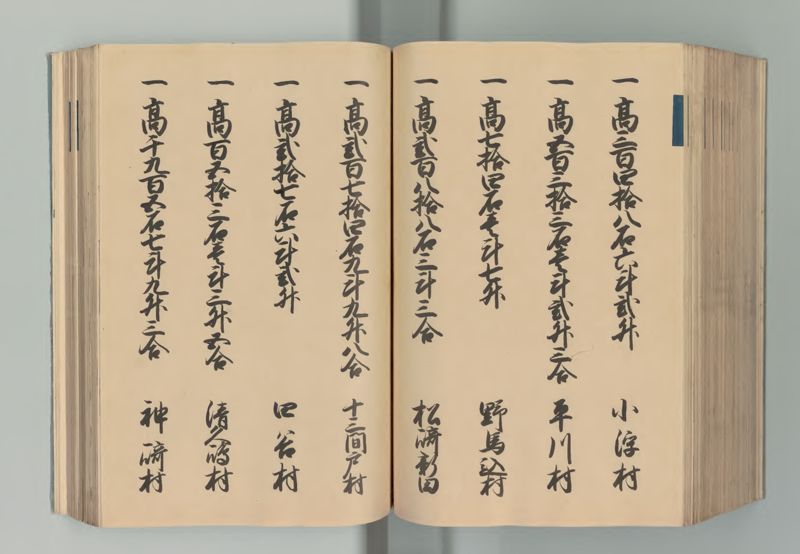 一高三百四拾八石六斗弐升 小浮村
一高五百三拾三石壱斗弐升三合 平川村
一高七拾四石壱斗七升 野馬込村
一高弐百八拾八石三斗三合 松崎新田
一高弐百七拾四石九斗九升八合 十三間戸村
一高弐拾七石六斗弐升 四谷村
一高百五拾三石壱斗三升五合 清久嶋村
一高千九百五石七斗九升三合 神崎村